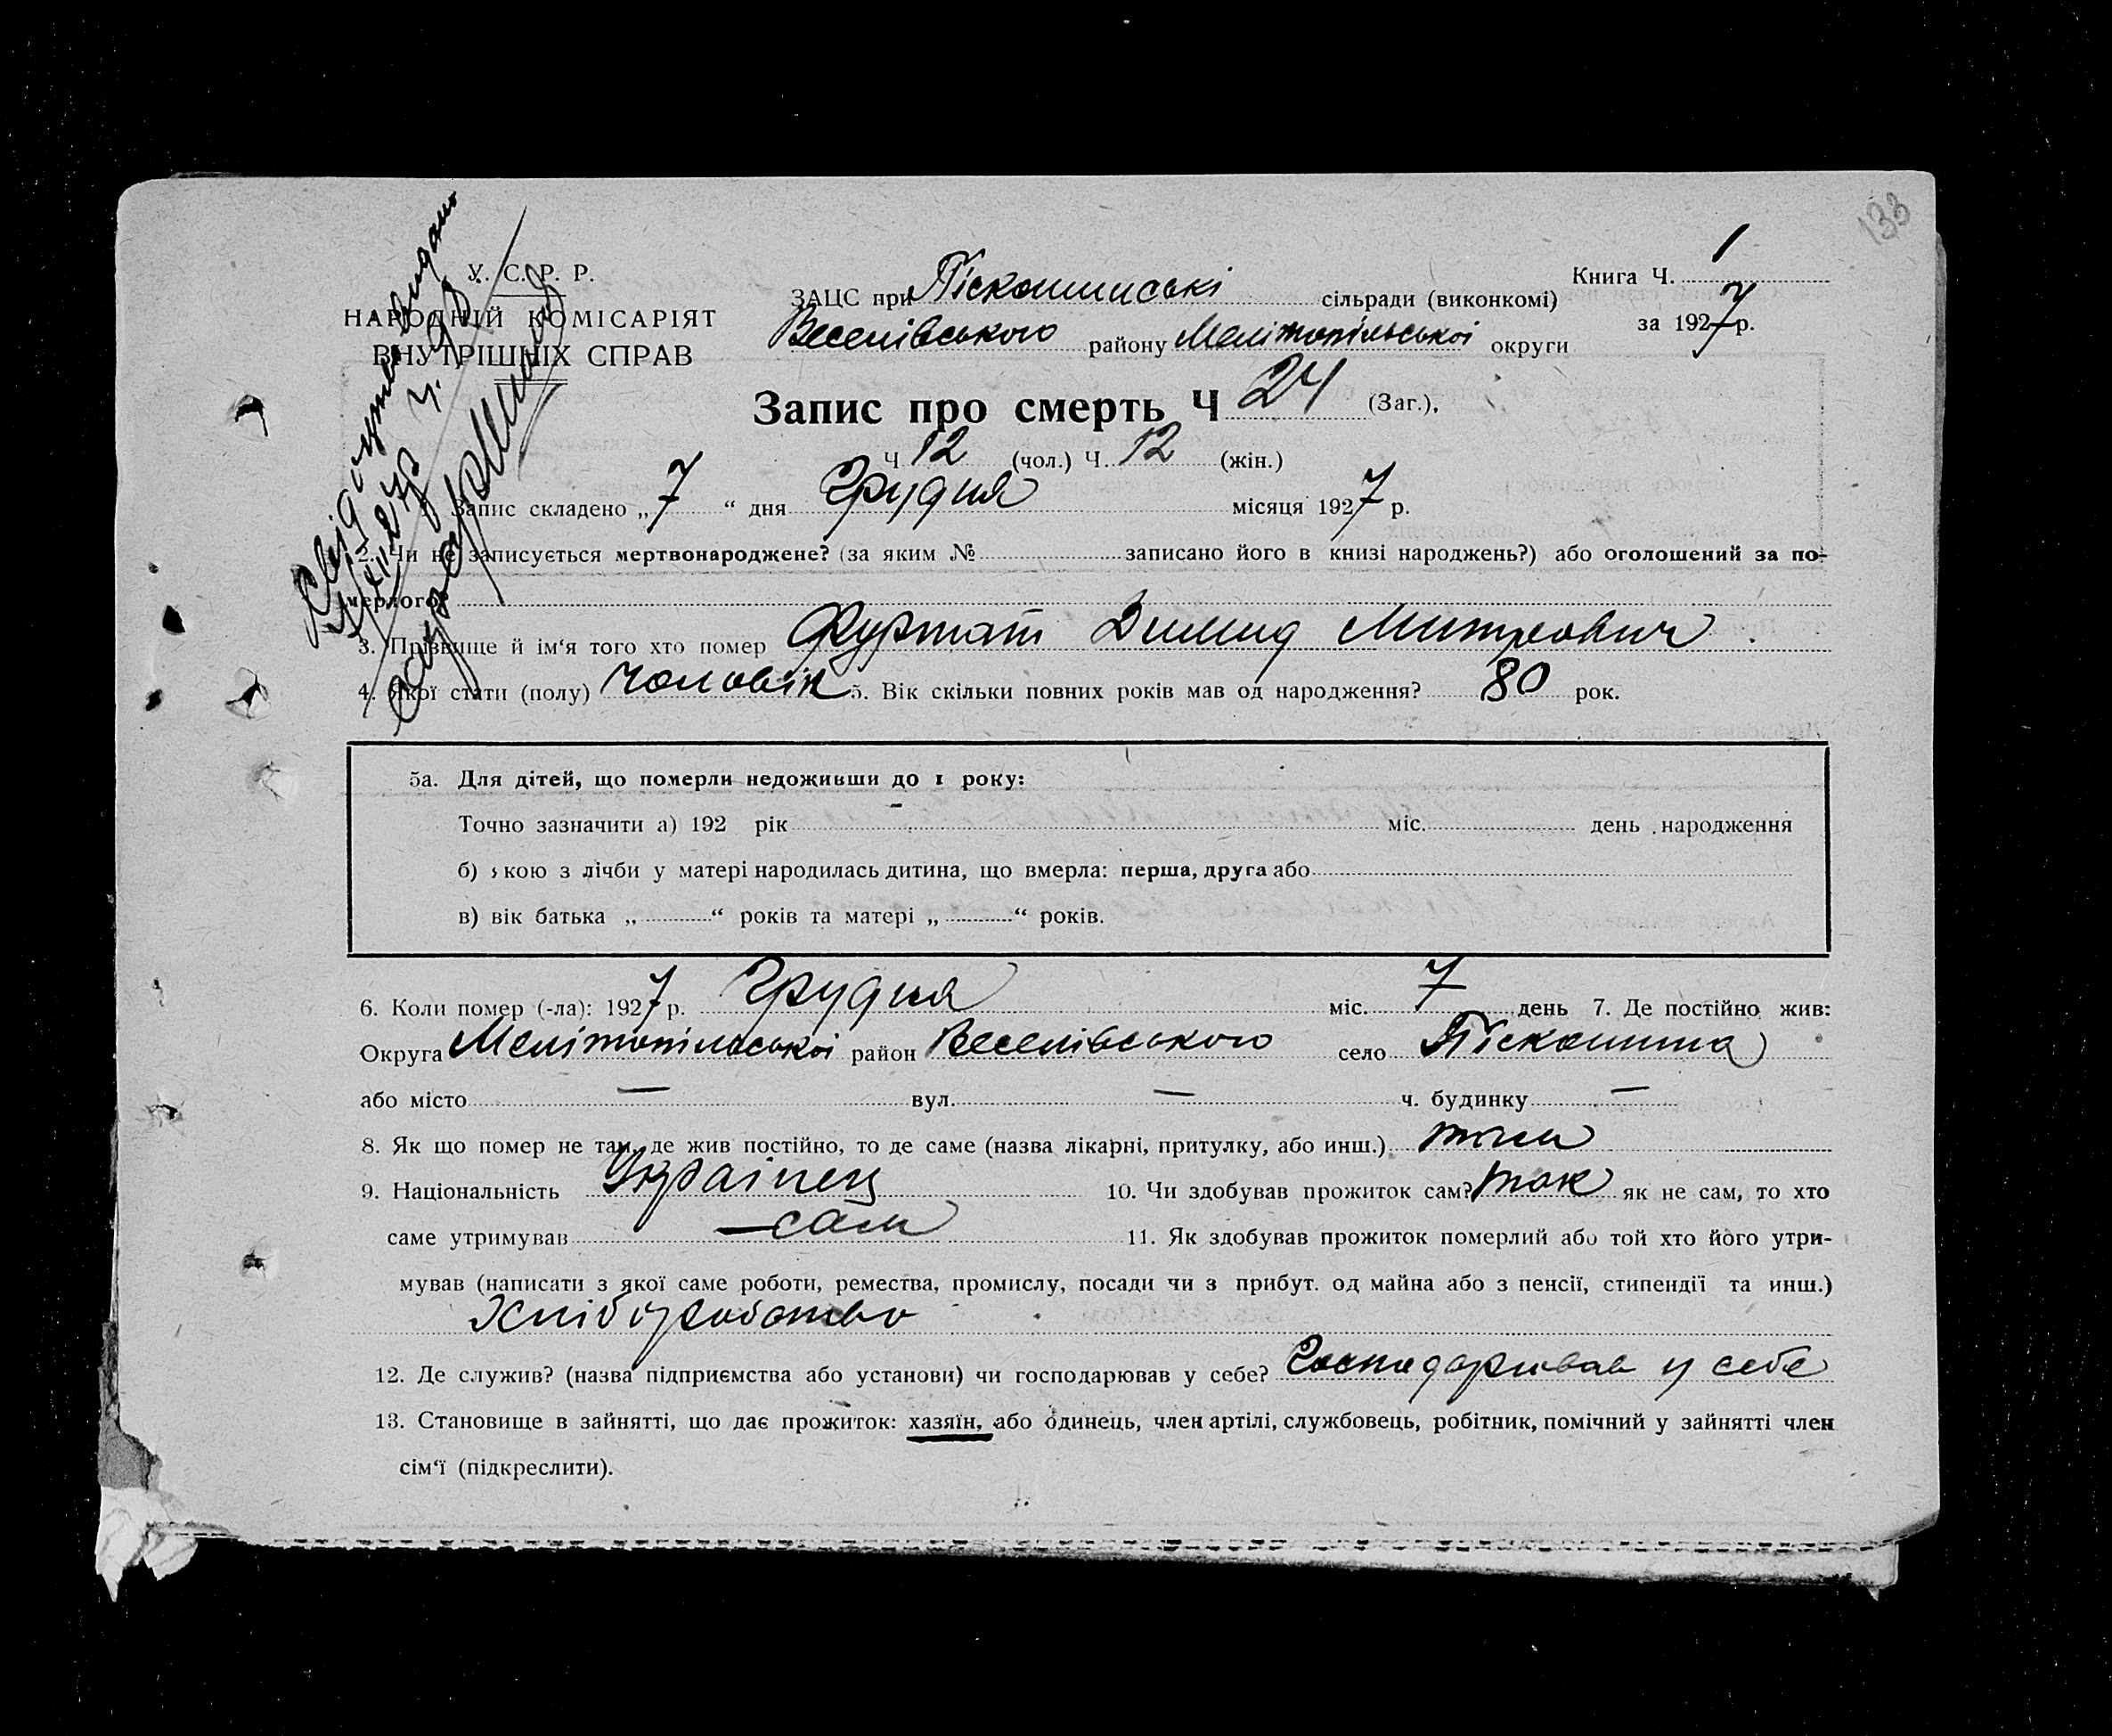 133
У. С. Р. Р.
НАРОДНІЙ КОМІСАРІЯТ
ВНУТРІШНІХ СПРАВ
Книга Ч. 1
за 1927 р.
ЗАЦС при Піскошинські сільради (виконкомі)
Веселівського району Мелітопільської округи
Запис про смерть Ч 24 (Заг.),
Ч 12 (чол.) Ч. 12 (жін.)
Запис складено „7“ дня Грудня місяця 1927 р.
2. Чи не записується мертвонароджене? (за яким № записано його в книзі народжень?) або оголошений за по-
мерлого?
3. Прізвище й ім‘я того хто помер Фуртат Димид Митрович.
4. Якої стати (полу) чоловік 5. Вік скільки повних років мав од народження? 80 рок.
5а. Для дітей, що померли недоживши до 1 року:
Точно зазначити а) 192 рік міс. день народження
б) якою з лічби у матері народилась дитина, що вмерла: перша, друга або
в) вік батька „ “ років та матері „ “ років.
6. Коли помер (-ла): 1927 р. Грудня міс. 7 день 7. Де постійно жив:
Округа Мелітопільської район Веселівського село Піскошина
або місто — вул. — ч. будинку —
8. Як що помер не там, де жив постійно, то де саме (назва лікарні, притулку, або инш.)
9. Національність Українец 10. Чи здобував прожиток сам? так як не сам, то хто
саме утримував —сам 11. Як здобував прожиток померлий або той хто його утри-
мував (написати з якої саме роботи, ремества, промислу, посади чи з прибут. од майна або з пенсії, стипендії та инш.)
Хліборобство
12. Де служив? (назва підприємства або установи) чи господарював у себе? Господарював у себе
13. Становище в зайнятті, що дає прожиток: хазяїн, або одинець, член артілі, службовець, робітник, помічний у зайнятті член
сім‘ї (підкреслити).